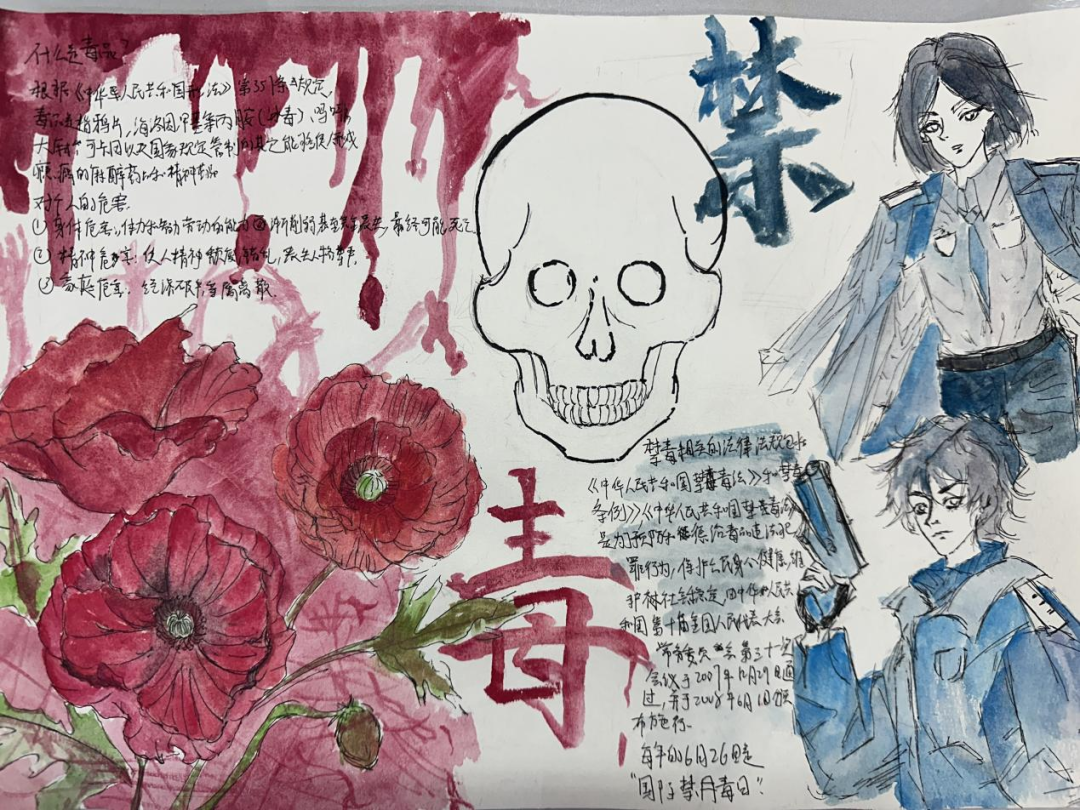 什么是毒品？
根据《中华人民共和国刑法》第357条规定，
毒品是指鸦片，海洛因，甲基苯丙胺（冰毒）、吗啡
大麻 可卡因以及国家规定管制的其它能够使人形成
瘾癖的麻醉药品和精神药品
对个人的危害
①身体危害：体力和智力劳动的能力 最终可能死亡
②精神危害：使人精神颓废 丧失人格
③家庭危害：经济破产 离散
禁
毒
禁毒相关的法律法规包括
《中华人民共和国禁毒法》和禁毒
条例》《中华人民共和国禁毒法
是为了预防和惩治毒品违法犯
罪行为，保护公民身心健康，维
护社会稳定 由中华人民共
和国第十届全国人民代表大会
常务委员会第三十一次
会议于2007年12月29日通
过，并于2008年6月1日
布施行
每年的6月26日是
“国际禁毒日”